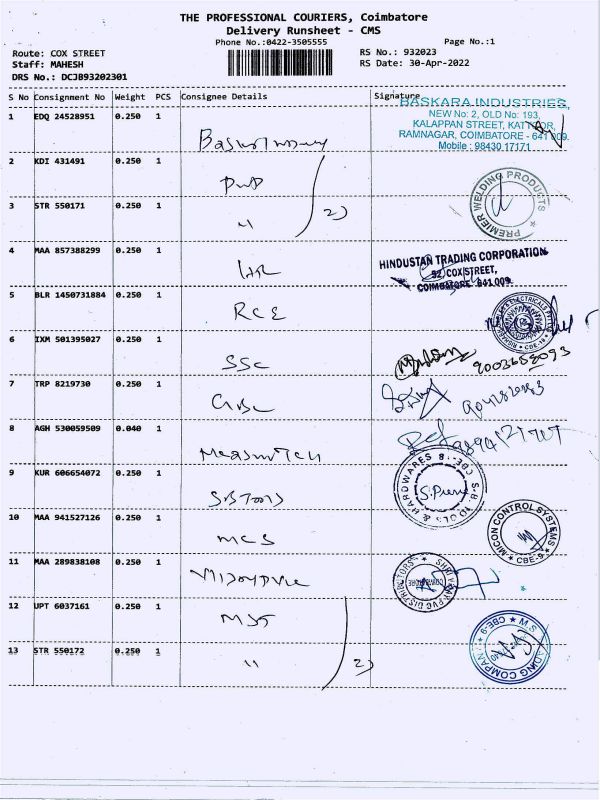 THE PROFESSIONAL COURIERS, Coimbatore
Delivery Runsheet - CMS
Phone No.:0422-3505555
Page No.:1
Route: COX STREET
RS No.: 932023
Staff: MAHESH
RS Date: 30-Apr-2022
DRS No.: DCJB93202301
S No Consignment No Weight PCS Consignee Details Signature
BASKARA INDUSTRIES,
NEW No: 2, OLD No: 193,
KALAPPAN STREET, KATTOOR,
RAMNAGAR, COIMBATORE - 641 009.
Mobile : 98430 17171
1 EDQ 24528951 0.250 1
2 KDI 431491 0.250 1 PWD
PREMIER WELDING PRODUCTS
3 STR 550171 0.250 1 " 2)
4 MAA 857388299 0.250 1
HINDUSTAN TRADING CORPORATION
52 COX STREET,
COIMBATORE 641 009.
5 BLR 1450731884 0.250 1 RCE
6 IXM 501395027 0.250 1 SSC
7 TRP 8219730 0.250 1 GBC
8 AGH 530059509 0.040 1
9 KUR 606654072 0.250 1 SBTools
S.B. TOOLS & HARDWARES CBE-18
10 MAA 941527126 0.250 1 MCS
MICON CONTROL SYSTEMS
CBE-9
11 MAA 289838108 0.250 1
SHRI VIJAY PVC DISTRIBUTORS
COIMBATORE
12 UPT 6037161 0.250 1
13 STR 550172 0.250 1 " 2)
CBE-9